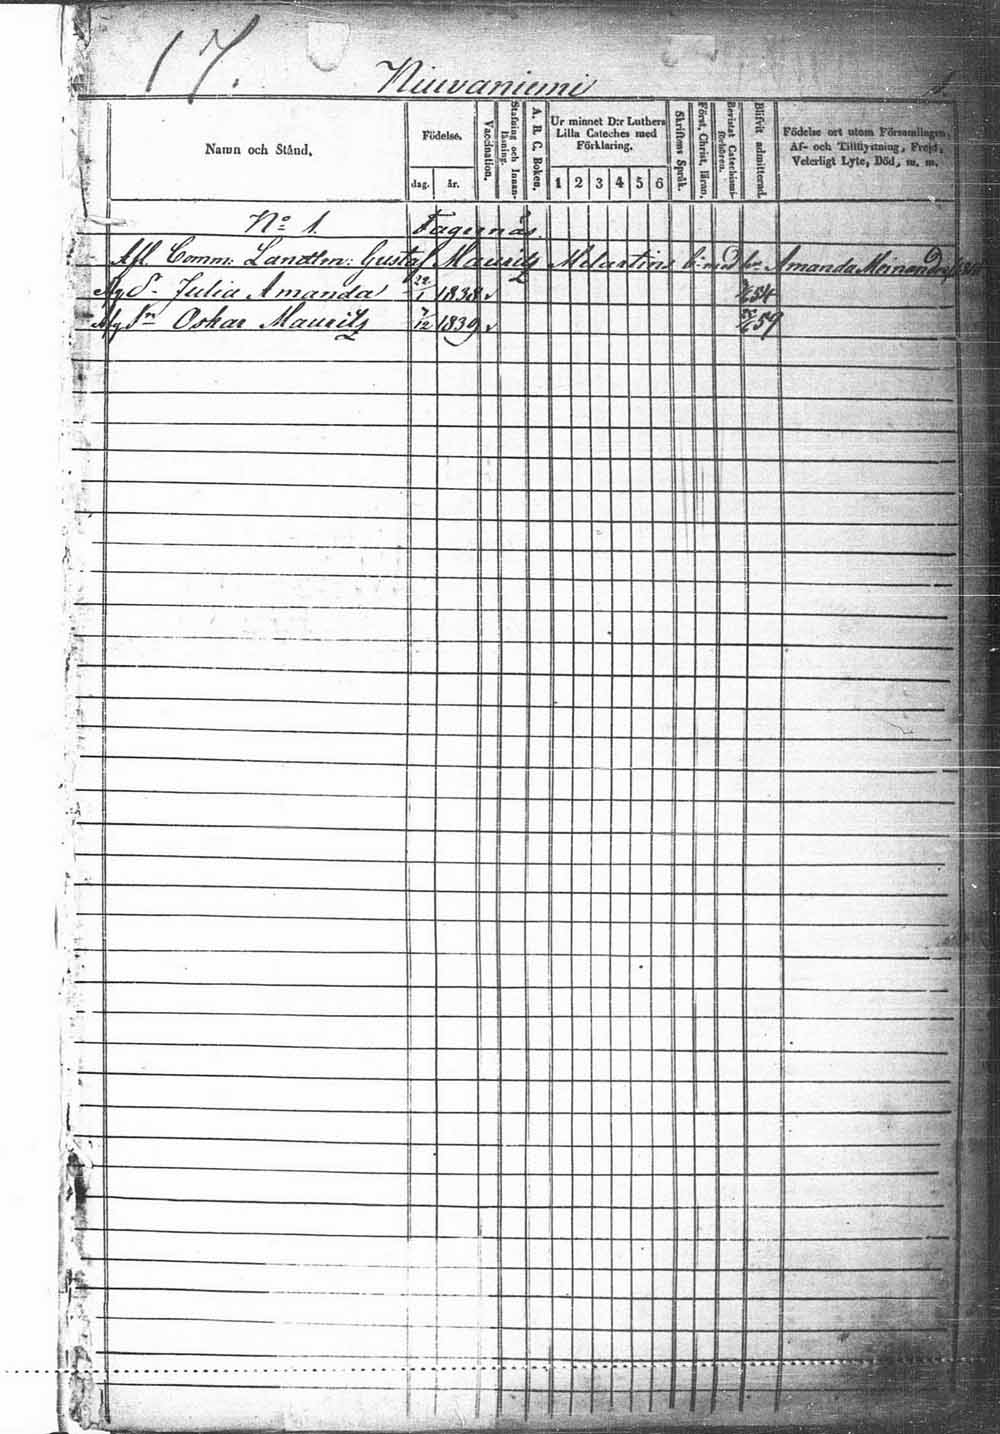 17.
Niuvaniemi
1.
Namn och Stånd.
Födelse.
dag. år.
Vaccination.
Stafning och Innanläsning.
A. B. C. Boken.
Ur minnet D:r Luthers Lilla Cateches med Förklaring.
1 2 3 4 5 6
Skriftens Språk.
Först. Christ. läran.
Bevistat Catechismiförhören.
Blifvit admitterad.
Födelse ort utom Församlingen, Af- och Tillflyttning, Frejd, Veterligt Lyte, Död, m. m.
No 1. Fagernäs.
Afl. Comm: Landtm: Gustaf Maurits Melartins Amanda
Julia Amanda 22/1 1838 v 54
Oskar Maurits 7/12 1839 v 59